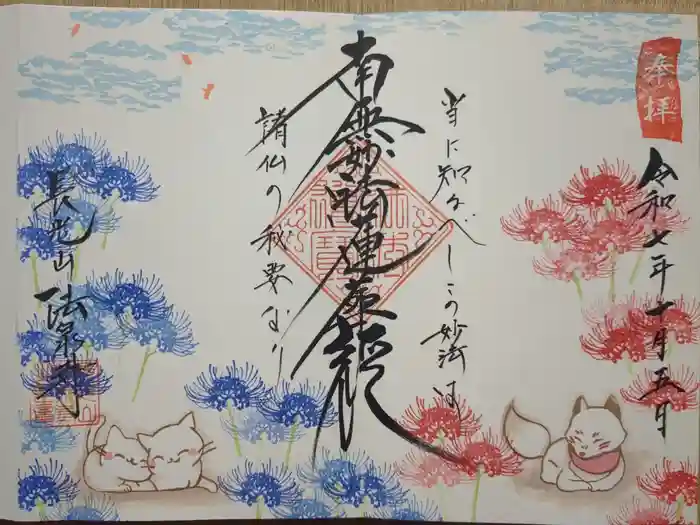 奉拝
令和七年十月五日
当に知るべしこの妙法は
南無妙法蓮華経
諸仏の秘要なり
法泉寺